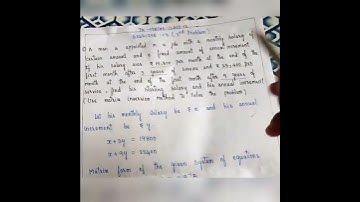 1) A man is appointed in a job with a monthly salary of
certain amount and a fixed amount of annual increment
If his salary was ₹ 19,800 per month at the end of the
first month after 3 years of service and ₹ 23,400 per
month at the end of the first month after 9 years of
service, find his starting salary and his annual increment
(Use matrix inversion method to solve the problem)
Let his monthly salary be ₹ x and his annual
increment be ₹ y
x + 3y = 19800
x + 9y = 23400
Matrix form of the given system of equations